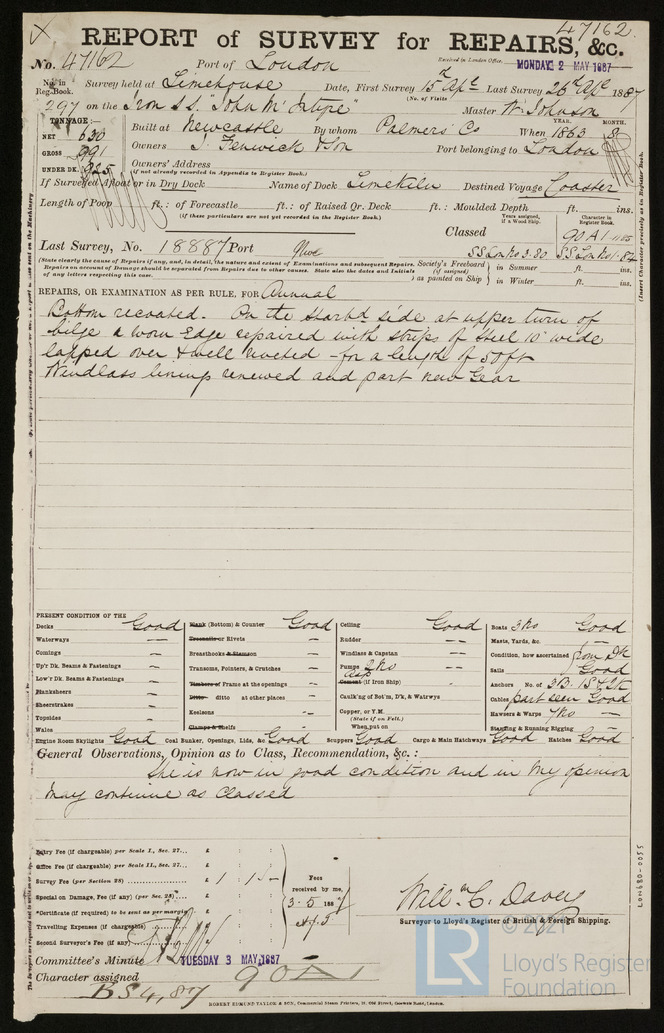 47162
REPORT of SURVEY for REPAIRS, &c.
No. 47162 Port of London Received in London Office, MONDAY 2 MAY 1887
No. in Reg. Book. Survey held at Limehouse Date, First Survey 15th Apl Last Survey 26th Apl 1887
(No. of Visits
297 on the Iron S.S. "John McIntyre" Master W. Johnson
TONNAGE:—
NET 630
GROSS 991
UNDER DK. 925
Built at Newcastle By whom Palmers Co When 1863 8
YEAR. MONTH.
Owners J. Fenwick & Son Port belonging to London
Owners' Address
(if not already recorded in Appendix to Register Book.)
If Surveyed Afloat or in Dry Dock Name of Dock Limekiln Destined Voyage Coaster
Length of Poop ft.: of Forecastle ft.: of Raised Qr. Deck ft.: Moulded Depth ft. ins.
(if these particulars are not yet recorded in the Register Book.)
Years assigned, if a Wood Ship. Character in Register Book.
Classed 90A1
Last Survey, No. 18887 Port Nwc
SS Lon No 3.80 SS Lon No 1.84
(State clearly the cause of Repairs if any, and, in detail, the nature and extent of Examinations and subsequent Repairs. Repairs on account of Damage should be separated from Repairs due to other causes. State also the dates and Initials of any letters respecting this case.)
Society's Freeboard (if assigned) as painted on Ship in Summer ft. ins.
in Winter ft. ins.
REPAIRS, OR EXAMINATION AS PER RULE, FOR Annual
Bottom recoated. On the Starbd side at upper turn of
bilge a worn Edge repaired with strips of Steel 10" wide
lapped over & well riveted - for a length of 50ft
Windlass lining renewed and part new Gear
PRESENT CONDITION OF THE
Decks Good
Waterways —
Comings —
Up'r Dk. Beams & Fastenings —
Low'r Dk. Beams & Fastenings —
Planksheers —
Sheerstrakes —
Topsides —
Wales —
Engine Room Skylights Good
Plank (Bottom) & Counter Good
Treenails or Rivets —
Breasthooks & Stemson —
Transoms, Pointers, & Crutches —
Timbers of Frame at the openings —
Ditto ditto at other places —
Keelsons —
Clamps & Shelfs —
Coal Bunker, Openings, Lids, &c. Good
Ceiling Good
Rudder —
Windlass & Capstan —
Pumps 2 No
Cement (if Iron Ship) —
Caulk'g of Bot'm, D'k, & Watrwys
Copper, or Y.M.
(State if on Felt.)
When put on
Scuppers Good Cargo & Main Hatchways Good
Boats 3 No Good
Masts, Yards, &c.
Condition, how ascertained from Dk
Sails Good
Anchors No. of 3B. 1S & K
Cables part seen Good
Hawsers & Warps 7 No —
Standing & Running Rigging —
Hatches Good
General Observations, Opinion as to Class, Recommendation, &c.:
She is now in good condition and in my opinion
may continue as Classed
Entry Fee (if chargeable) per Scale I., Sec. 27... £ : :
Office Fee (if chargeable) per Scale II., Sec. 27... £ : :
Survey Fee (per Section 28) £ 1 : 1 : -
Special on Damage, Fee (if any) (per Sec. 28) £ : :
*Certificate (if required) to be sent as per margin
Travelling Expenses (if chargeable) £ : :
Second Surveyor's Fee (if any) £ : :
Fees received by me,
3.5 1887
Will. m C. Davey
Surveyor to Lloyd's Register of British & Foreign Shipping.
Committee's Minute TUESDAY 3 MAY 1887
Character assigned 90A
BS 4,87
ROBERT EDMUND TAYLOR & SON, Commercial Steam Printers, 19, Old Street, Goswell Road, London.
(Insert Character precisely as in Register Book.)
LON680-0055
© 2021
LR
Lloyd's Register
Foundation